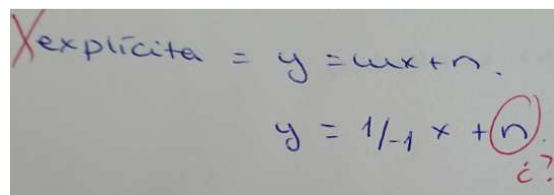 explícita = y = mx + n.
y = 1/-1 x + n.
¿?